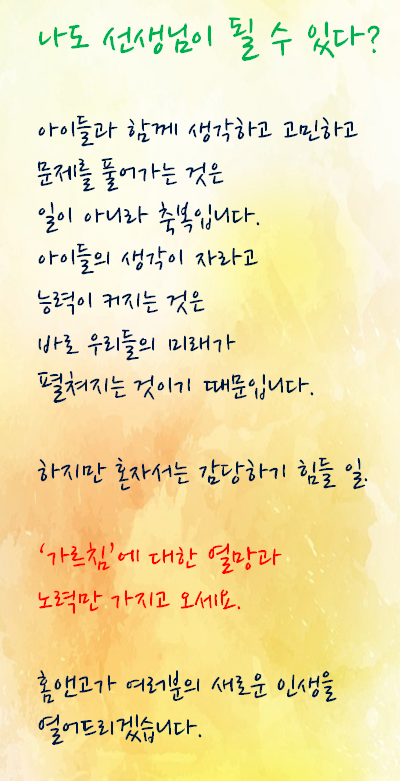 나도 선생님이 될 수 있다?
아이들과 함께 생각하고 고민하고
문제를 풀어가는 것은
일이 아니라 축복입니다.
아이들의 생각이 자라고
능력이 커지는 것은
바로 우리들의 미래가
펼쳐지는 것이기 때문입니다.
하지만 혼자서는 감당하기 힘들 일.
'가르침'에 대한 열망과
노력만 가지고 오세요.
홈앤고가 여러분의 새로운 인생을
열어드리겠습니다.